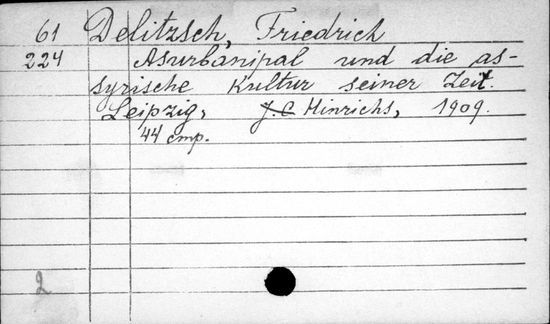 61 Delitzsch, Friedrich
224 Asurbanipal und die as-
syrische Kultur seiner Zeit.
Leipzig, J. C Hinrichs, 1909.
44 стр.
2